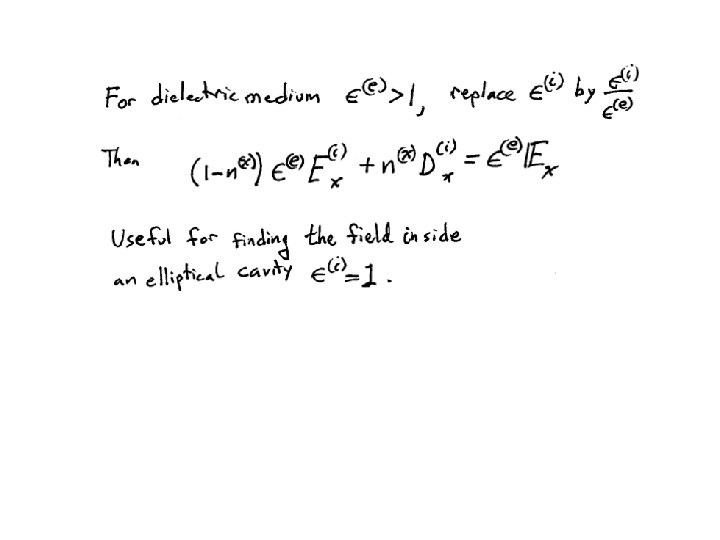 For dielectric medium ϵ^(e)>1, replace ϵ^(i) by ϵ^(i)/ϵ^(e)
Then (1-n^(x)) ϵ^(e) E_x^(i) + n^(x) D_x^(i) = ϵ^(e) 𝔼_x
Useful for finding the field inside
an elliptical cavity ϵ^(i)=1.